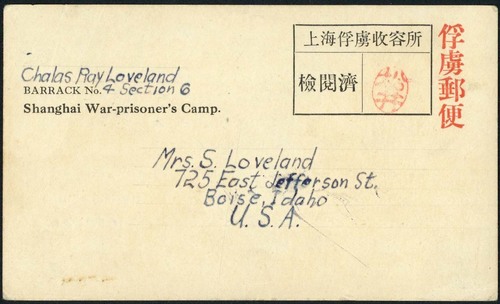 上海俘虜收容所
檢閱濟
俘虜郵便
Chalas Ray Loveland
BARRACK No. 4 Section 6
Shanghai War-prisoner's Camp.
Mrs. S. Loveland
725 East Jefferson St.
Boise, Idaho
U. S. A.